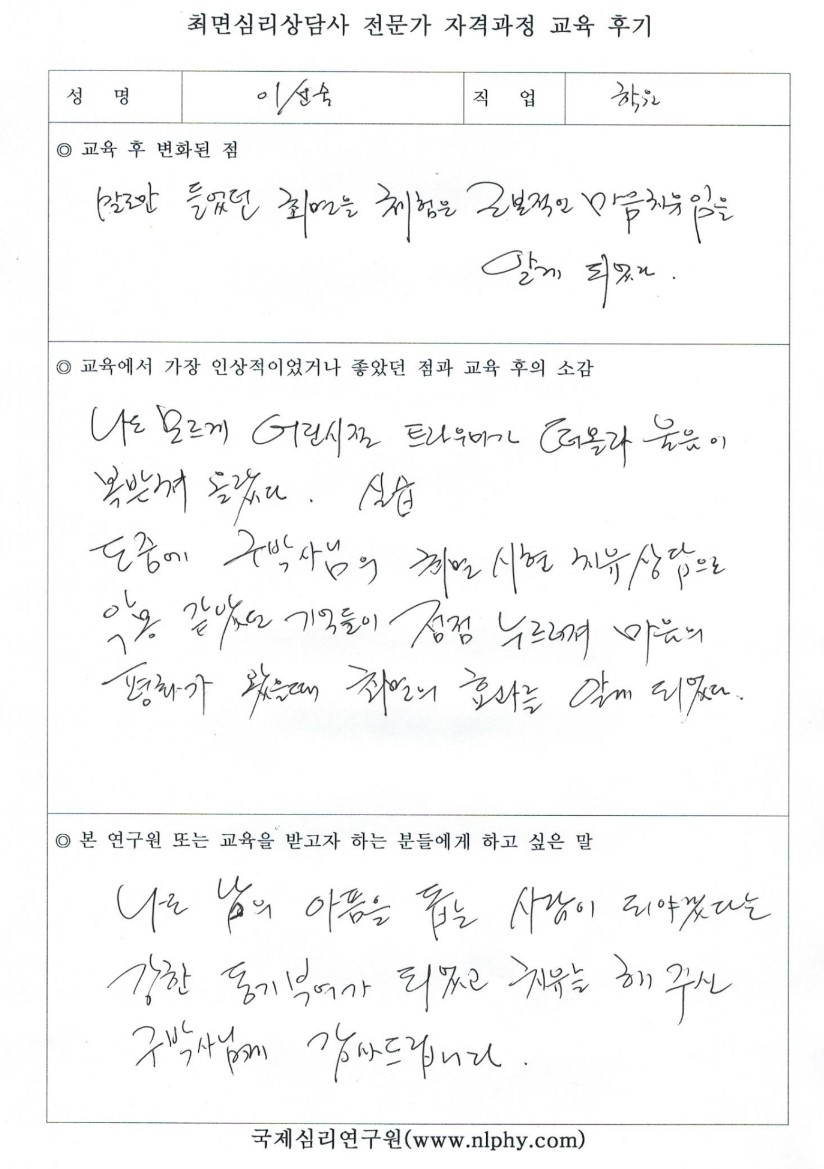 최면심리상담사 전문가 자격과정 교육 후기
성 명 이선숙 직 업 학원
◎ 교육 후 변화된 점
말로만 들었던 최면을 체험은 근본적인 마음치유임을
알게 되었다.
◎ 교육에서 가장 인상적이었거나 좋았던 점과 교육 후의 소감
나도 모르게 어린시절 트라우마가 떠올라 울음이
복받쳐 올랐다. 실습
도중에 구박사님의 최면 시현 치유상담으로
악몽 같았던 기억들이 점점 누르러져 마음의
평화가 왔을때 최면의 효과를 알게 되었다.
◎ 본 연구원 또는 교육을 받고자 하는 분들에게 하고 싶은 말
나도 남의 아픔을 돕는 사람이 되야겠다는
강한 동기부여가 되었고 치유를 해 주신
구박사님께 감사드립니다.
국제심리연구원(www.nlphy.com)